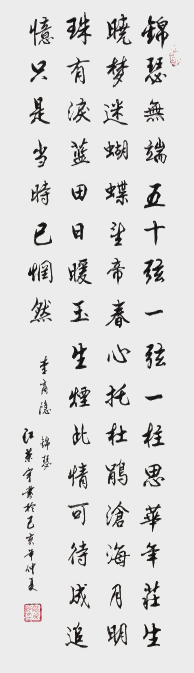 錦瑟無端五十弦一弦一柱思華年莊生
曉夢迷蝴蝶望帝春心托杜鵑滄海月明
珠有淚藍田日暖玉生煙此情可待成追
憶只是当時已惘然
李商隐 錦瑟
書於己亥年仲夏